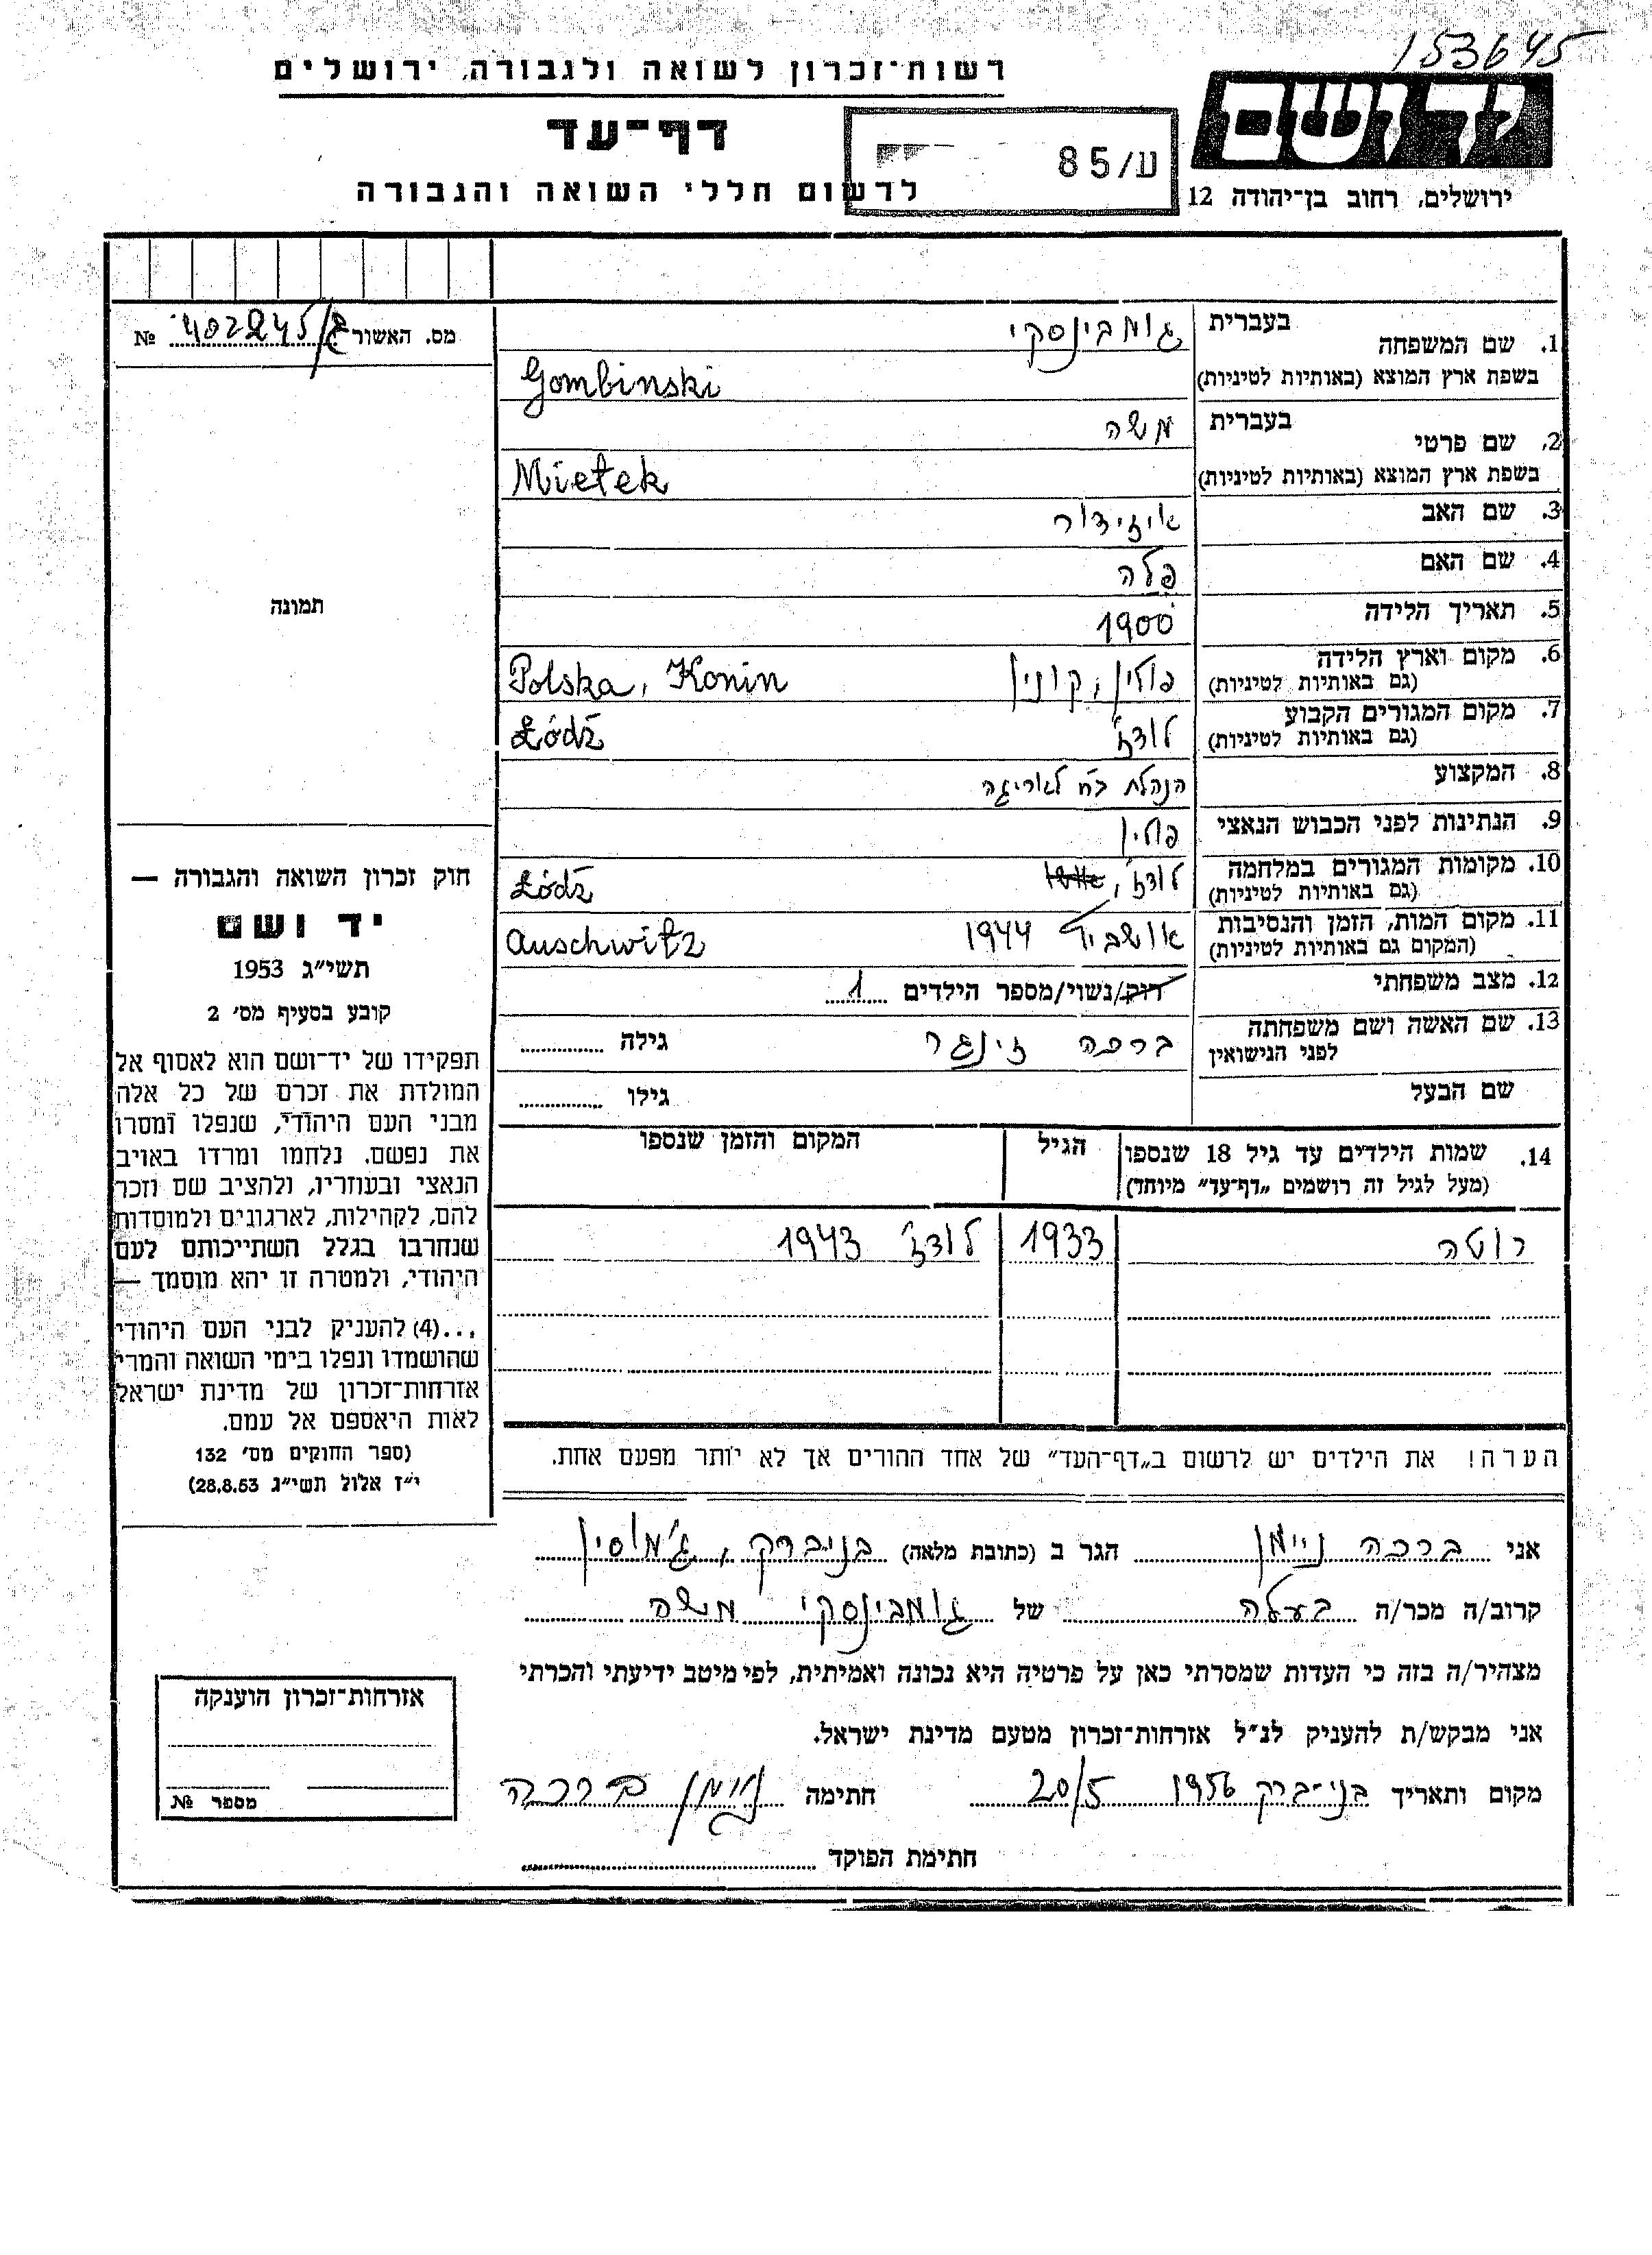 153645
רשות־זכרון לשואה ולגבורה, ירושלים
דף־עד
לרשום חללי השואה והגבורה
ע/85
יד ושם
ירושלים, רחוב בן־יהודה 12
מס. האשור ג/402245 №
תמונה
1. שם המשפחה בעברית גומבינסקי
בשפת ארץ המוצא (באותיות לטיניות) Gombinski
2. שם פרטי בעברית משה
בשפת ארץ המוצא (באותיות לטיניות) Mietek
3. שם האב איזידור
4. שם האם פלה
5. תאריך הלידה 1900
6. מקום וארץ הלידה (גם באותיות לטיניות) פולין, קונין Polska, Konin
7. מקום המגורים הקבוע (גם באותיות לטיניות) לודז' Łódź
8. המקצוע הנהלת בח לאריגה
9. הנתינות לפני הכבוש הנאצי פולין
10. מקומות המגורים במלחמה (גם באותיות לטיניות) לודז', Łódź
11. מקום המות, הזמן והנסיבות (המקום גם באותיות לטיניות) אושביץ 1944 Auschwitz
12. מצב משפחתי רוק/נשוי/מספר הילדים 1
13. שם האשה ושם משפחתה לפני הנישואין ברכה זינגר גילה
שם הבעל גילו
14. שמות הילדים עד גיל 18 שנספו הגיל המקום והזמן שנספו
(מעל לגיל זה רושמים „דף־עד” מיוחד)
רוטה 1933 לודז' 1943
הערה! את הילדים יש לרשום ב„דף־העד” של אחד ההורים אך לא יותר מפעם אחת.
חוק זכרון השואה והגבורה —
יד ושם
תשי״ג 1953
קובע בסעיף מס׳ 2
תפקידו של יד־ושם הוא לאסוף אל
המולדת את זכרם של כל אלה
מבני העם היהודי, שנפלו ומסרו
את נפשם, נלחמו ומרדו באויב
הנאצי ובעוזריו, ולהציב שם וזכר
להם, לקהילות, לארגונים ולמוסדות
שנחרבו בגלל השתייכותם לעם
היהודי, ולמטרה זו יהא מוסמך —
...(4) להעניק לבני העם היהודי
שהושמדו ונפלו בימי השואה והמרי
אזרחות־זכרון של מדינת ישראל
לאות היאספם אל עמם.
(ספר החוקים מס׳ 132
י״ז אלול תשי״ג 28.8.53)
אני ברכה ניימן הגר ב (כתובת מלאה) בני ברק, ג'מוסין
קרוב/ה מכר/ה בעלה של גומבינסקי משה
מצהיר/ה בזה כי העדות שמסרתי כאן על פרטיה היא נכונה ואמיתית, לפי מיטב ידיעתי והכרתי
אני מבקש/ת להעניק לנ״ל אזרחות־זכרון מטעם מדינת ישראל.
מקום ותאריך בני־ברק 1956 20/5 חתימה ניימן ברכה
חתימת הפוקד
אזרחות־זכרון הוענקה
מספר №